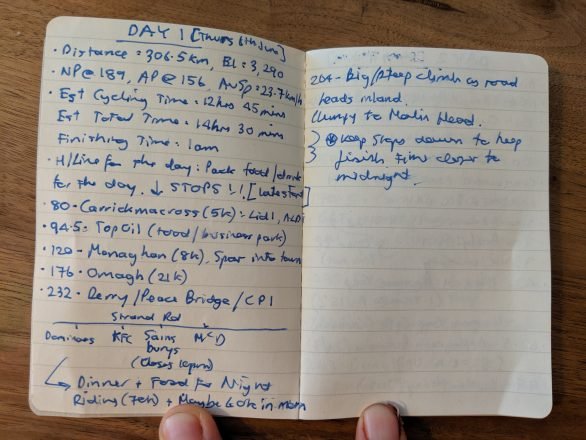 DAY 1 [Thurs 6th June]
· Distance = 306.5km, El = 3,290
· NP@189, AP@156, AvSp=23.7km/h
· Est Cycling Time = 12hrs 45mins
Est Total Time = 14hrs 30mins
Finishing Time = 1am
· H/Line for the day: Pack food/drink
for the day. ↓ STOPS!! [Late start]
· 80 - Carrickmacross (5k): Lidl, Aldi
· 94.5 - Top Oil (food/business park)
· 120 - Monaghan (8k), Spar into town
· 176 - Omagh (21k)
· 232 - Derry/Peace Bridge/CP1
Strand Rd
Dominoes KFC Sains McD
burys
(closes 10pm)
↳ Dinner + Food for Night
Riding (70k) + Maybe 60k in morn
204 - Big/steep climb as road
heads inland.
Lumpy to Malin Head.
* Keep stops down to keep
finish time closer to
midnight.